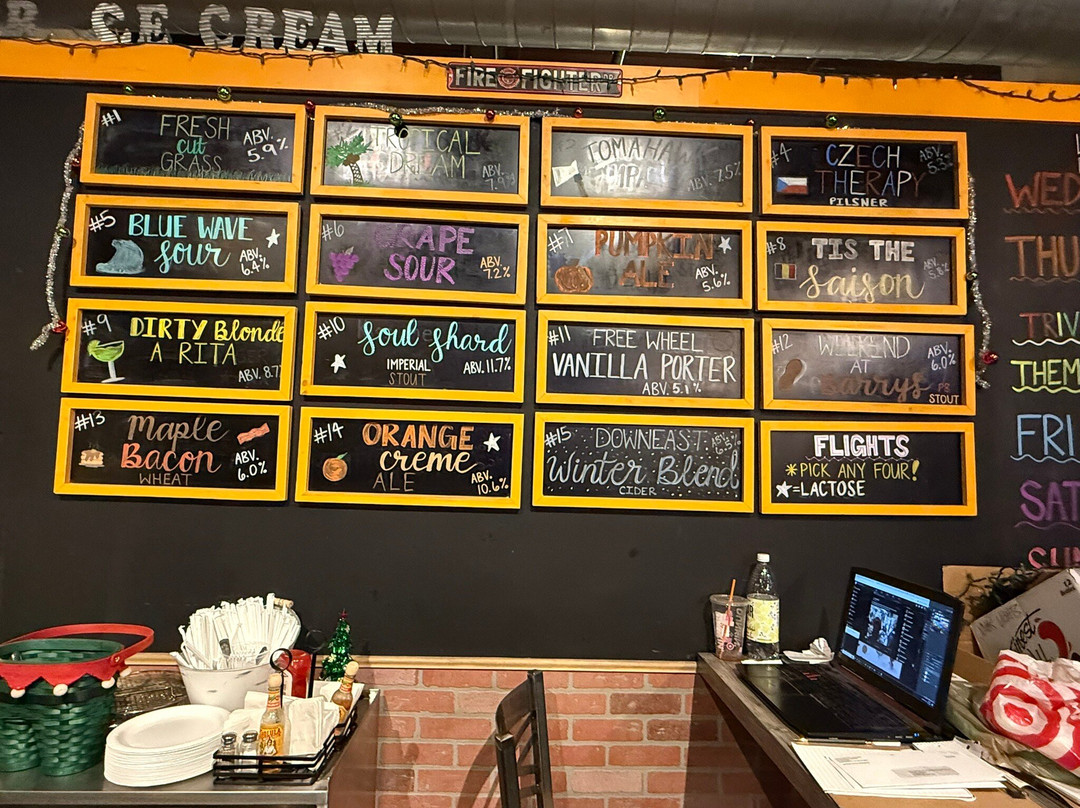 CE CREAM
FIRE FIGHTER
#1
FRESH
cut
GRASS
ABV.
5.9%
TROPICAL
DREAM
ABV.
7.9%
TOMAHAWK
ABV. 7.5%
#4
CZECH
THERAPY
PILSNER
ABV.
5.3%
#5
BLUE WAVE
Sour
ABV.
6.4%
#6
GRAPE
SOUR
ABV.
7.2%
#7
PUMPKIN
ALE
ABV.
5.6%
#8
TIS THE
Saison
ABV.
#9
DIRTY Blonde
A RITA
ABV. 8.7
#10
Soul Shard
IMPERIAL
STOUT
ABV. 11.7%
#11
FREE WHEEL
VANILLA PORTER
ABV. 5.1%
#12
WEEKEND
AT
Barrys
PB
STOUT
ABV.
6.0%
#13
Maple
Bacon
WHEAT
ABV.
6.0%
#14
ORANGE
creme
ALE
ABV.
10.6%
#15
DOWNEAST
Winter Blend
CIDER
FLIGHTS
*PICK ANY FOUR!
=LACTOSE
WED
THU
TRIV
THEM
FRI
SAT
SUN